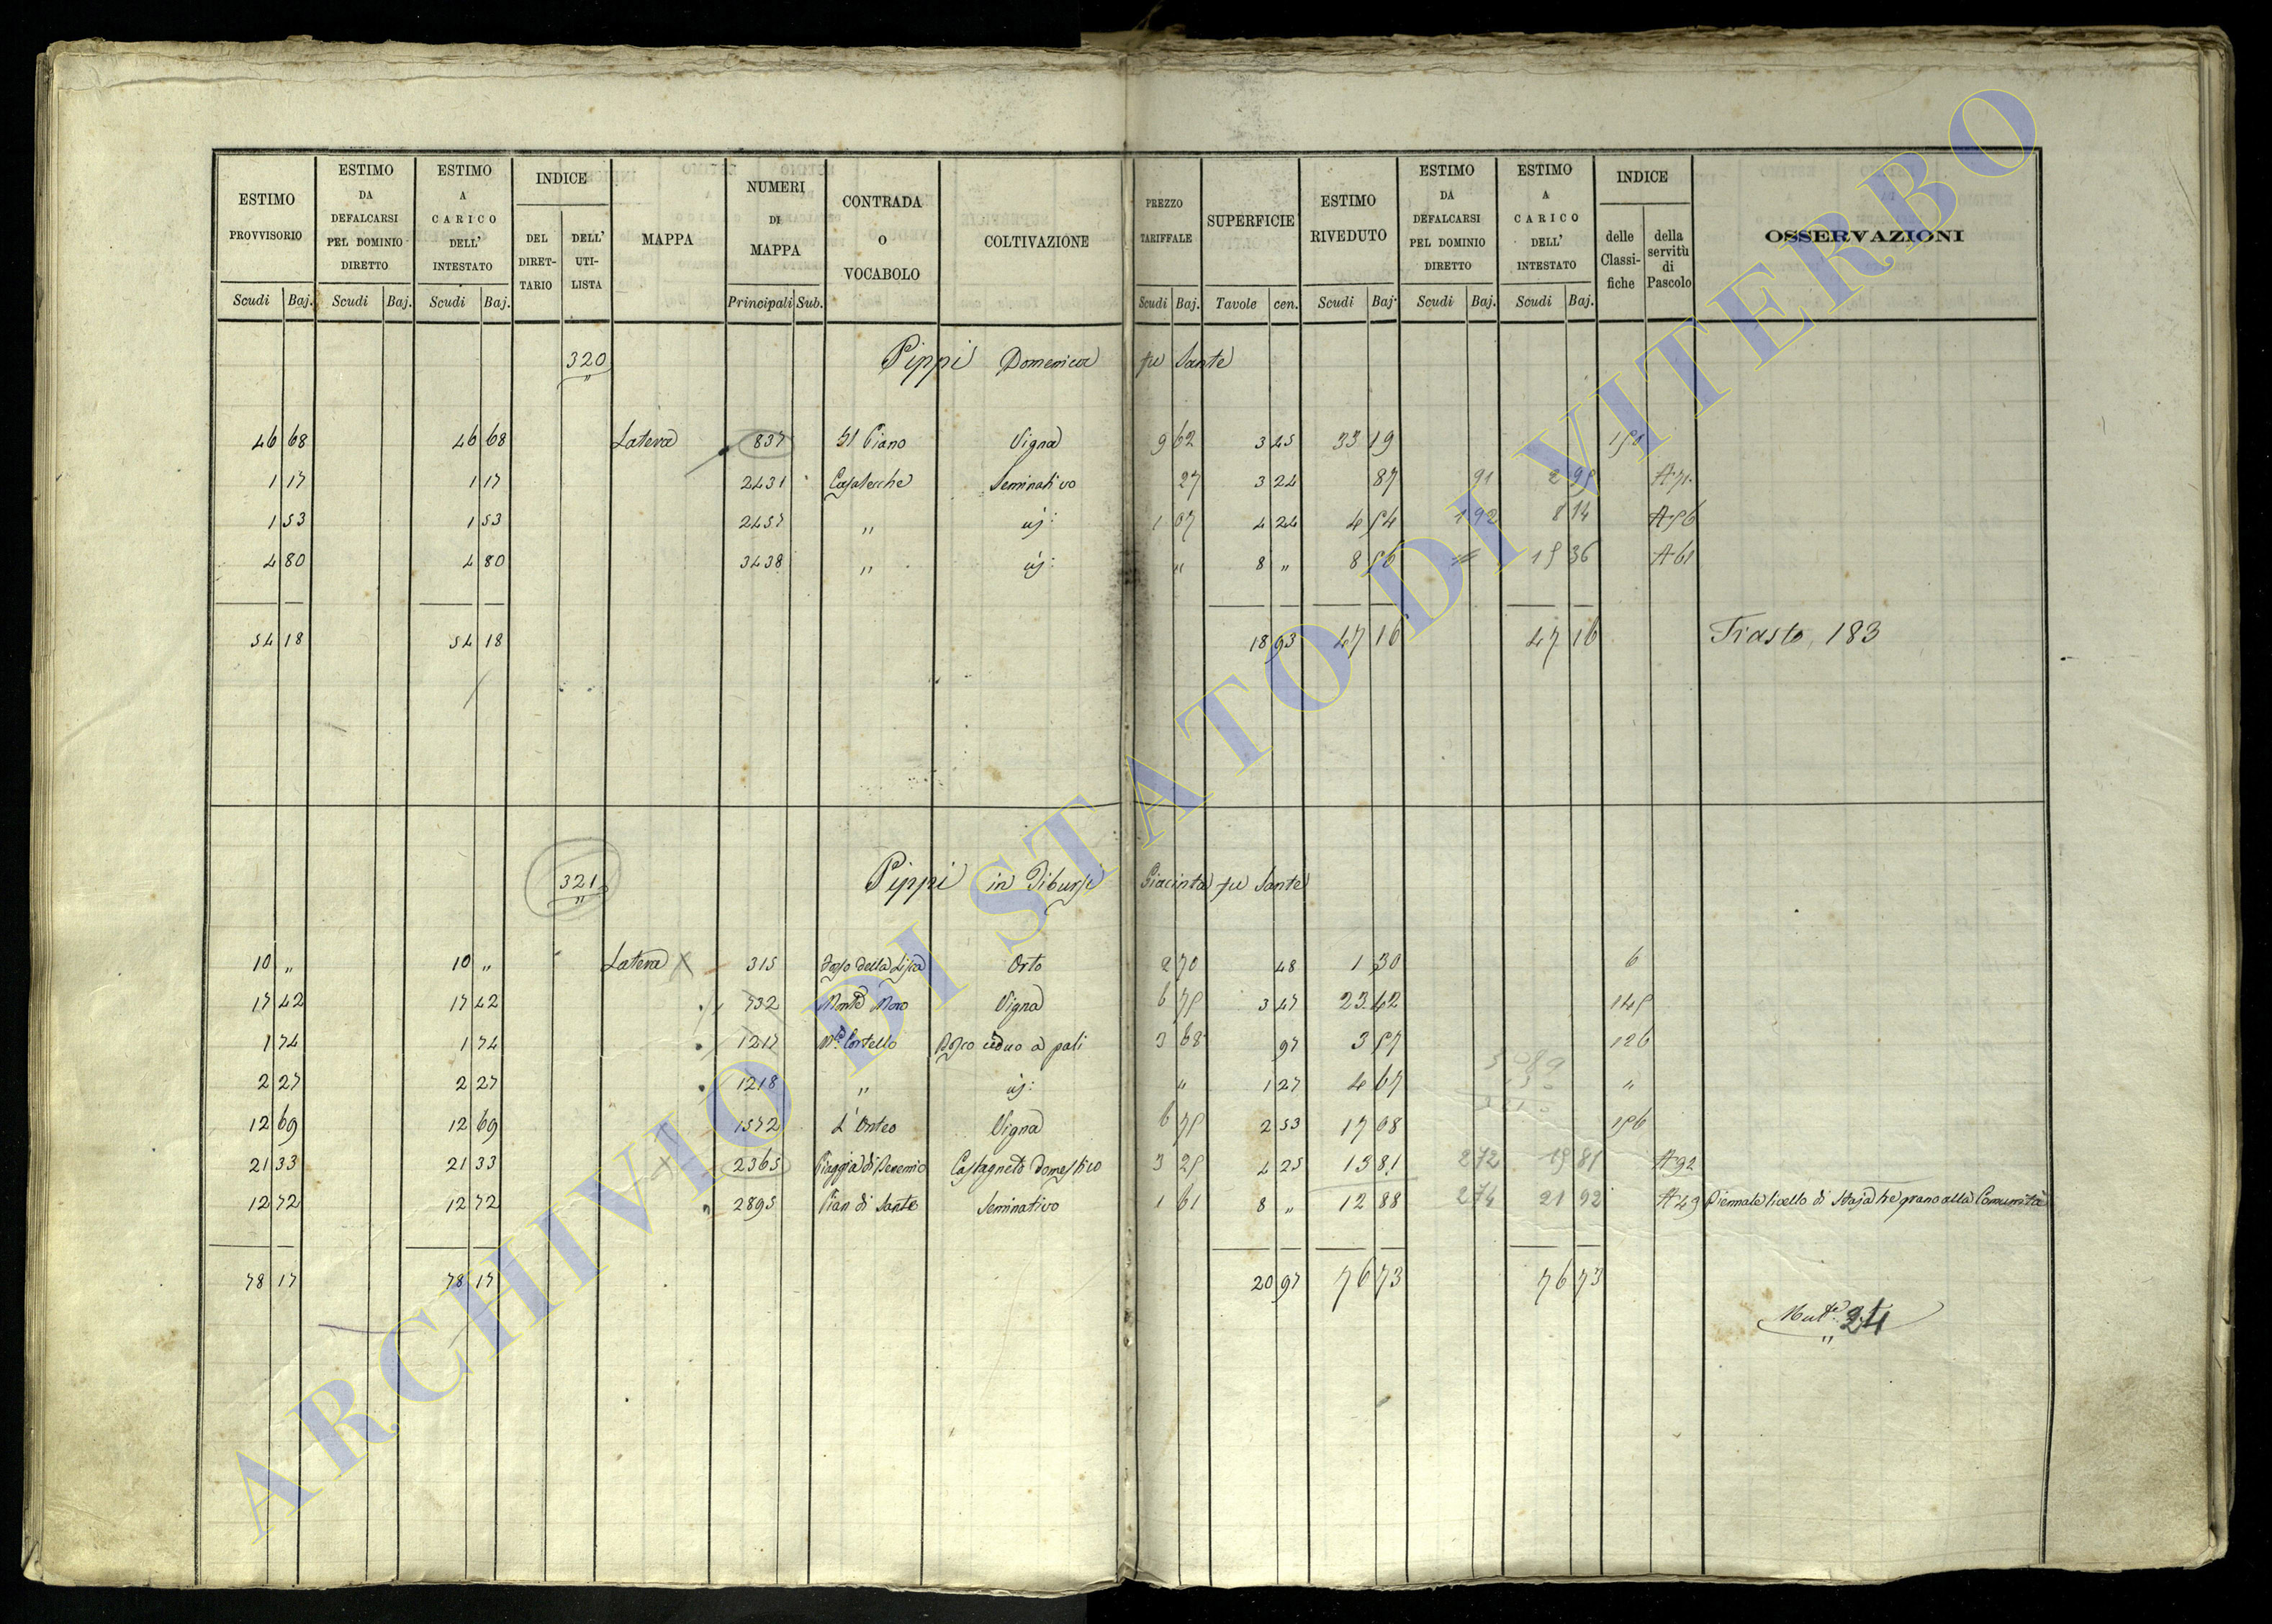 ESTIMO PROVVISORIO Scudi Baj.
ESTIMO DA DEFALCARSI PEL DOMINIO DIRETTO Scudi Baj.
ESTIMO A CARICO DELL' INTESTATO Scudi Baj.
INDICE DEL DIRET-TARIO DELL' UTI-LISTA
MAPPA
NUMERI DI MAPPA Principali Sub.
CONTRADA O VOCABOLO
COLTIVAZIONE
PREZZO TARIFFALE Scudi Baj.
SUPERFICIE Tavole cen.
ESTIMO RIVEDUTO Scudi Baj
ESTIMO DA DEFALCARSI PEL DOMINIO DIRETTO Scudi Baj.
ESTIMO A CARICO DELL' INTESTATO Scudi Baj.
INDICE delle Classi-fiche della servitù di Pascolo
OSSERVAZIONI
320 Pippi Domenica fu Sante
46 68 46 68 Latera 837 Il Piano Vigna 9 62 3 45 33 19
1 17 1 17 2431 Casalecche Seminativo 27 3 24 87 91 2 95 A 71
1 53 1 53 2457 " id: 1 07 4 24 4 54 1 92 8 14 A 56
4 80 4 80 3438 " id: " 8 " 8 56 15 36 A 61
54 18 54 18 18 93 47 16 47 16 Trasto, 183
321 Pippi in Tiburzi Giacinta fu Sante
10 " 10 " Latera 315 Fosso della Lisca Orto 2 70 48 1 30 6
17 42 17 42 732 Monte Moro Vigna 6 75 3 47 23 42 145
1 74 1 74 1217 Mte Cortello Bosco ceduo a pali 3 68 97 3 57 126
2 27 2 27 1218 " id: " 1 27 4 67 "
12 69 12 69 1572 L'Onteo Vigna 6 75 2 53 17 08 156
21 33 21 33 2365 Piaggia di Castagneto domestico 3 25 4 25 13 81 2 72 19 81 A 92
12 72 12 72 2895 Pian di Sante Seminativo 1 61 8 " 12 88 2 74 21 92 A 49 Biennale livello di Staja tre grano alla Comunità
78 17 78 17 20 97 76 73 76 73
24
ARCHIVIO DI STATO DI VITERBO